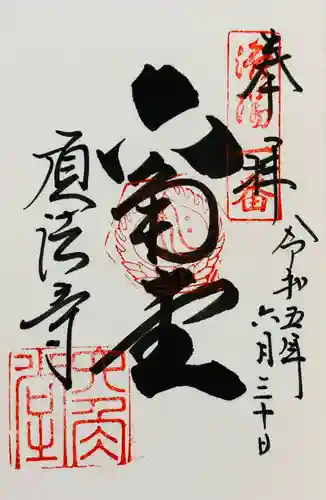 奉拝
令和五年
六月三十日
六角堂
頂法寺
六角堂